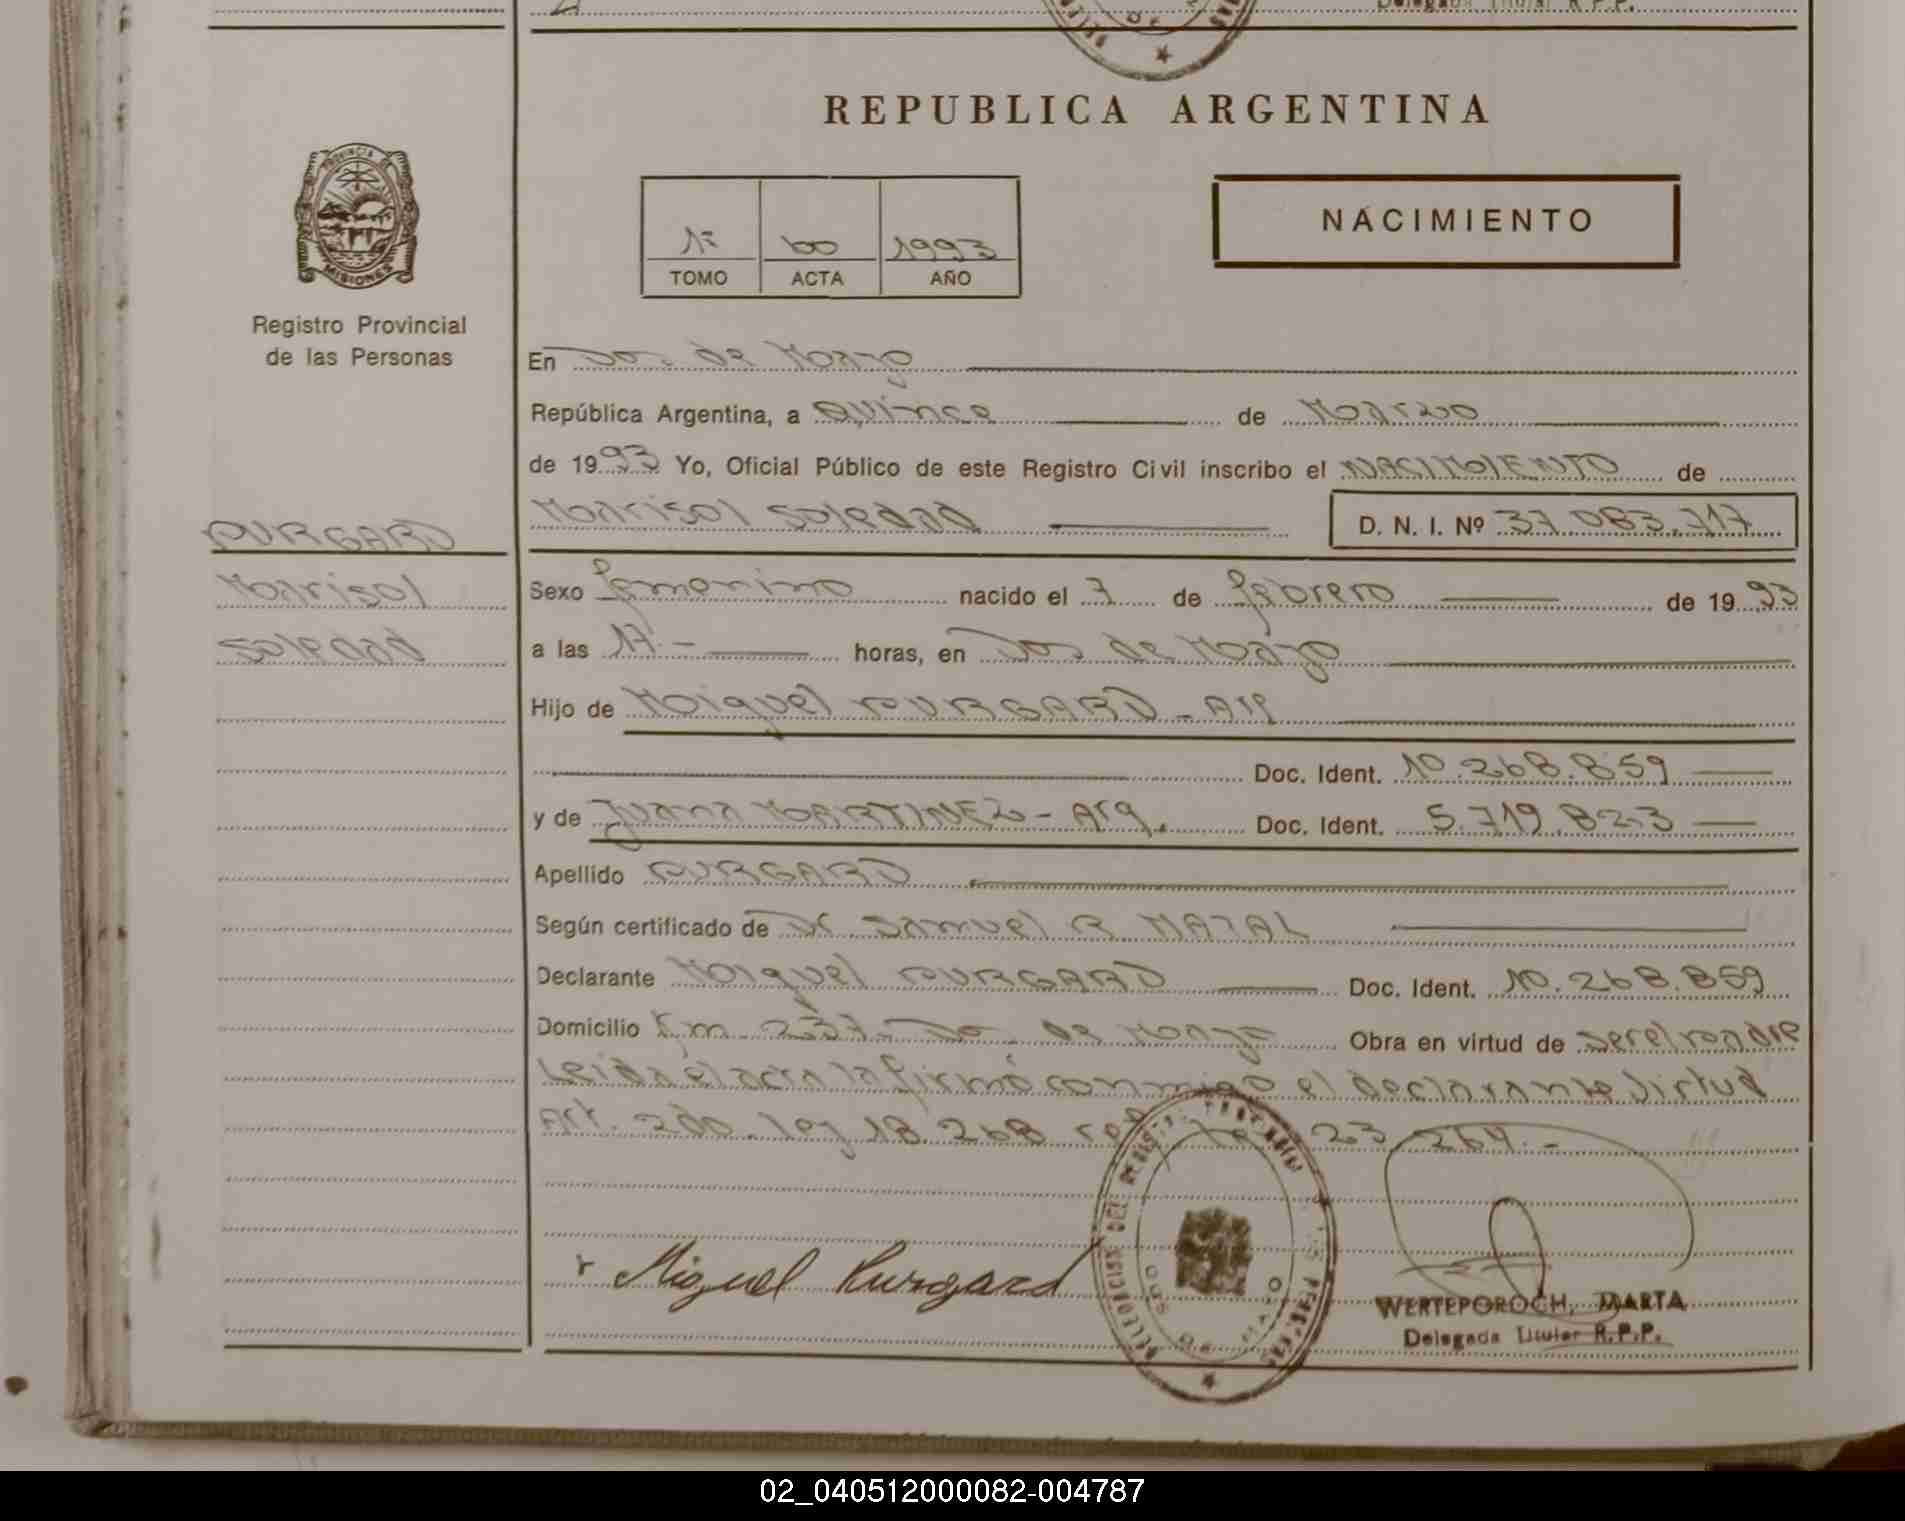 Delegada Titular R.P.P.
REPUBLICA ARGENTINA
PROVINCIA DE
MISIONES
Registro Provincial
de las Personas
1º 60 1993
TOMO ACTA AÑO
NACIMIENTO
En Dos de Mayo
República Argentina, a Quince de Marzo
de 1993 Yo, Oficial Público de este Registro Civil inscribo el NACIMIENTO de
Marisol Soledad D. N. I. Nº 37.083.717
PURGARD
Marisol
Soledad
Sexo femenino nacido el 7 de febrero de 1993
a las 17.- horas, en Dos de Mayo
Hijo de Miguel PURGARD - Arg
Doc. Ident. 10.268.859
y de Juana MARTINEZ - Arg. Doc. Ident. 5.719.823
Apellido PURGARD
Según certificado de Dr Samuel R
Declarante Miguel PURGARD Doc. Ident. 10.268.859
Domicilio Km 237 - Dos de Mayo Obra en virtud de ser el padre
Leida el acta la firmó conmigo el declarante Virtud
Art. 2do. ley 18.268 ley 23.264.-
Miguel Purgard
DELEGACION DEL REGISTRO PROVINCIAL DE LAS PERSONAS
DOS DE MAYO
WERTEPOROCH, MARTA
Delegada Titular R.P.P.
02_040512000082-004787